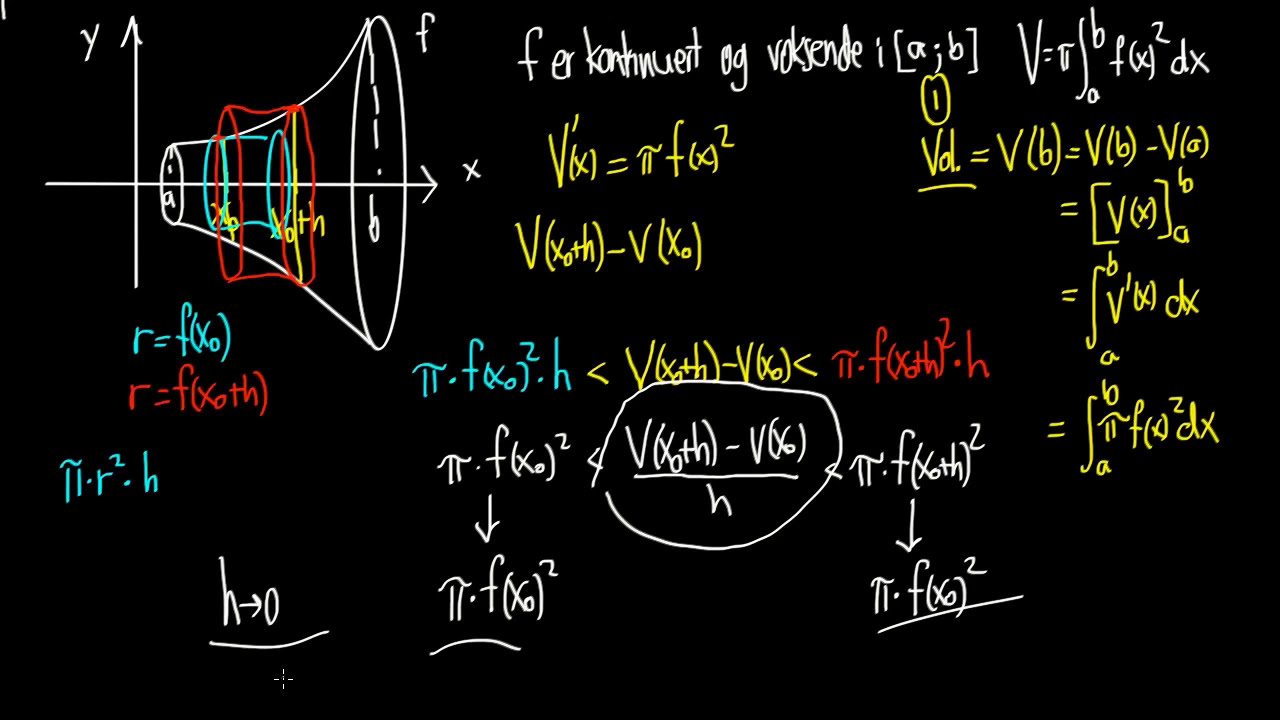 y
f
x
a
x₀
x₀+h
b
f er kontinuert og voksende i [a;b] V=π∫ₐᵇ f(x)² dx
①
V'(x) = π f(x)²
Vol. = V(b) = V(b) - V(a)
= [V(x)]ₐᵇ
V(x₀+h) - V(x₀)
= ∫ₐᵇ V'(x) dx
= ∫ₐᵇ π f(x)² dx
r = f(x₀)
r = f(x₀+h)
π·f(x₀)²·h < V(x₀+h) - V(x₀) < π·f(x₀+h)²·h
π·f(x₀)² < (V(x₀+h) - V(x₀))/h < π·f(x₀+h)²
π·r²·h
↓ ↓
h→0 π·f(x₀)² π·f(x₀)²